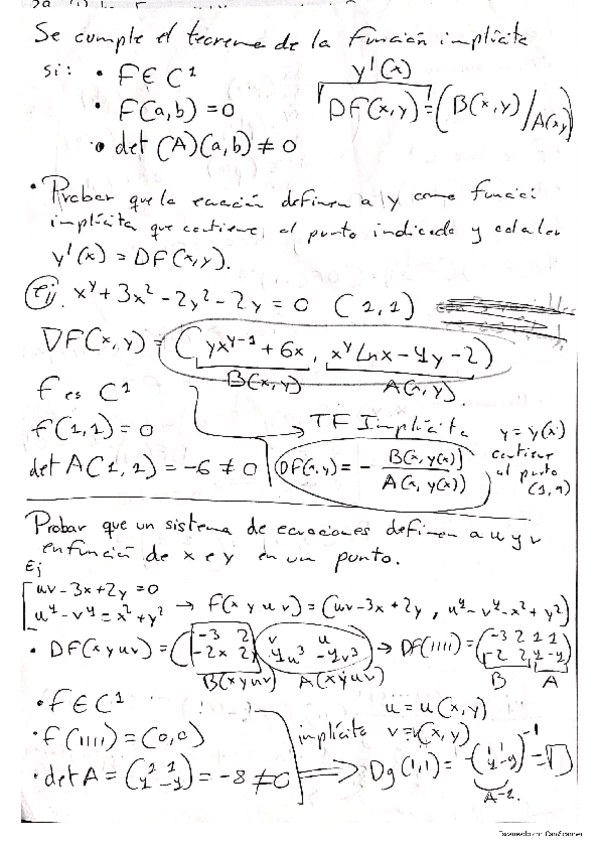 Se cumple el teorema de la función implícita
si: • f ∈ C¹ y'(x)
• f(a,b) = 0 DF(x,y) = (B(x,y)/A(x,y))
• det (A)(a,b) ≠ 0
• Probar que la ecuación definen a y como funció
implícita que contiene, al punto indicado y calcular
y'(x) = DF(x,y).
Ej. x^y + 3x² - 2y² - 2y = 0 (1,1)
DF(x,y) = (yx^(y-1) + 6x, x^y Lnx - 4y - 2)
B(x,y) A(x,y)
f es C¹
f(1,1) = 0 → TF Implícita y = y(x)
det A(1,1) = -6 ≠ 0 DF(x,y) = - B(x,y(x))/A(x,y(x)) contiene al punto (1,1)
Probar que un sistema de ecuaciones definen a u y v
en función de x e y en un punto.
Ej
uv - 3x + 2y = 0
u⁴ - v⁴ = x² + y² → f(x y u v) = (uv - 3x + 2y, u⁴ - v⁴ - x² + y²)
• DF(x y u v) = (-3 2 v u
-2x 2y 4u³ -4v³) → DF(1111) = (-3 2 1 1
-2 2 4 -4)
B(xyuv) A(xyuv) B A
• f ∈ C¹ u = u(x,y)
• f(1111) = (0,0) implícita v = v(x,y)
• det A = (1 1
4 -4) = -8 ≠ 0 ⟹ Dg(1,1) = -(1 1
4 -4)⁻¹ -
A⁻¹